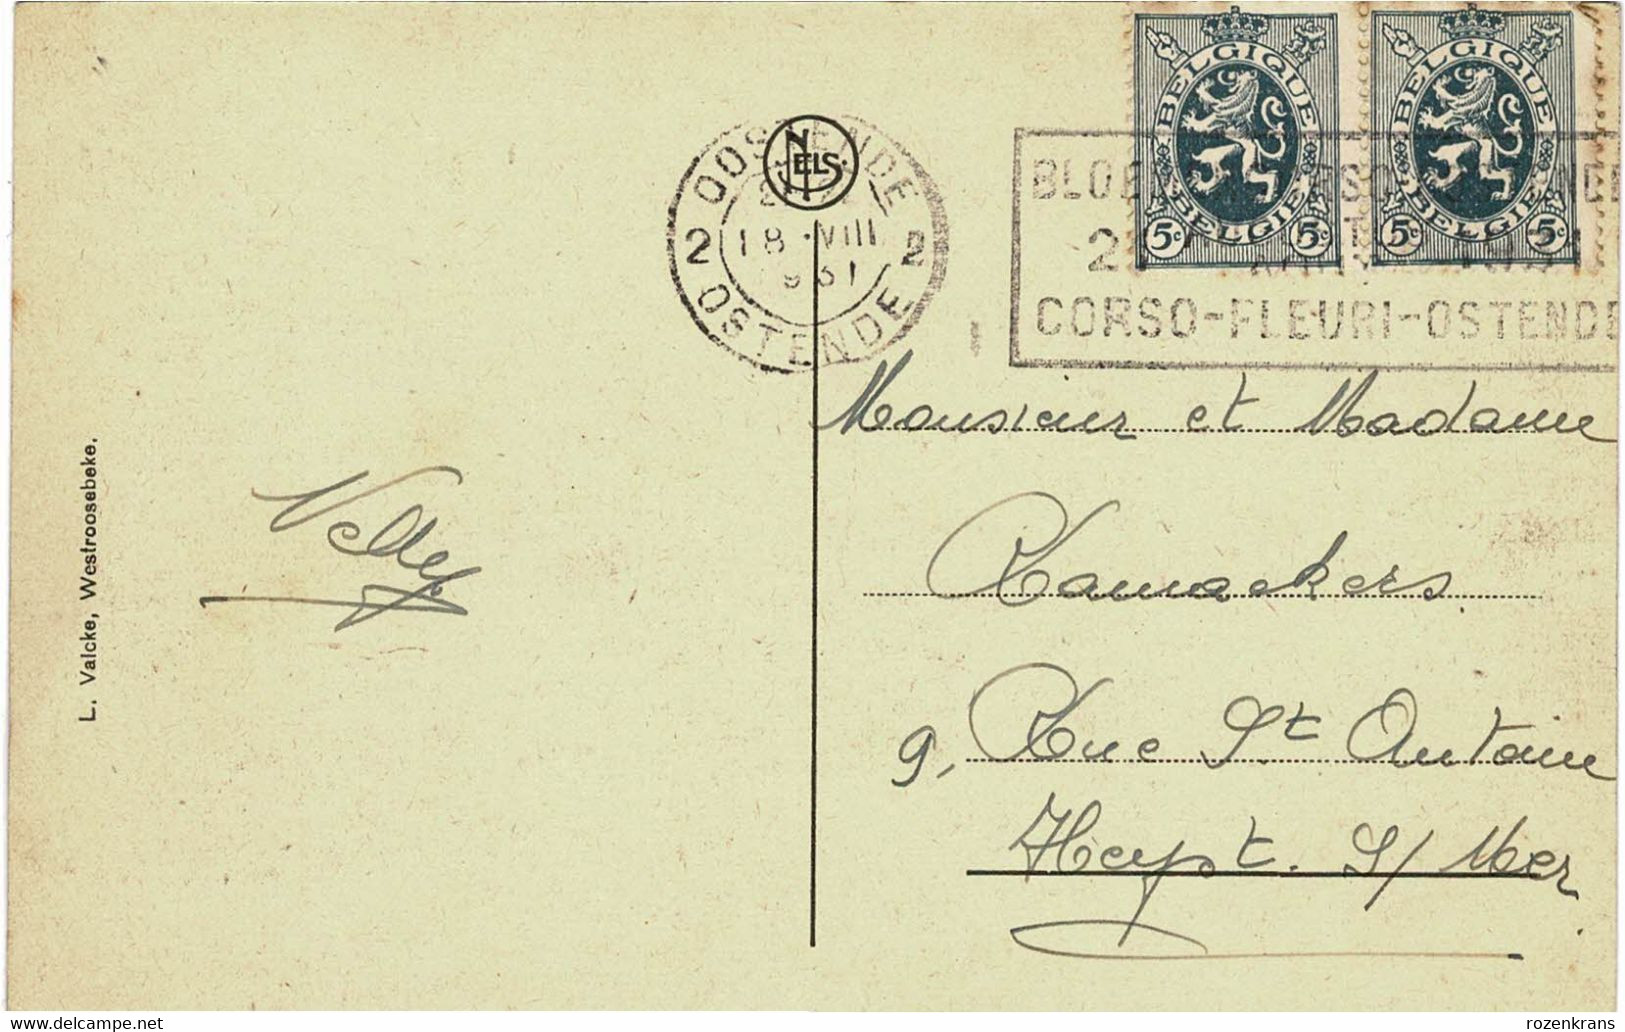 BELGIQUE
BELGIE
5c 5c
BELGIQUE
BELGIE
5c 5c
OOSTENDE
2 18 VIII 2
1931
OSTENDE
NELS
CORSO-FLEURI-OSTENDE
Monsieur et Madame
Ramaekers
9, Rue St Antoine
Heyst. S/Mer
Nelly
L. Valcke, Westroosebeke.
www.delcampe.net
rozenkrans